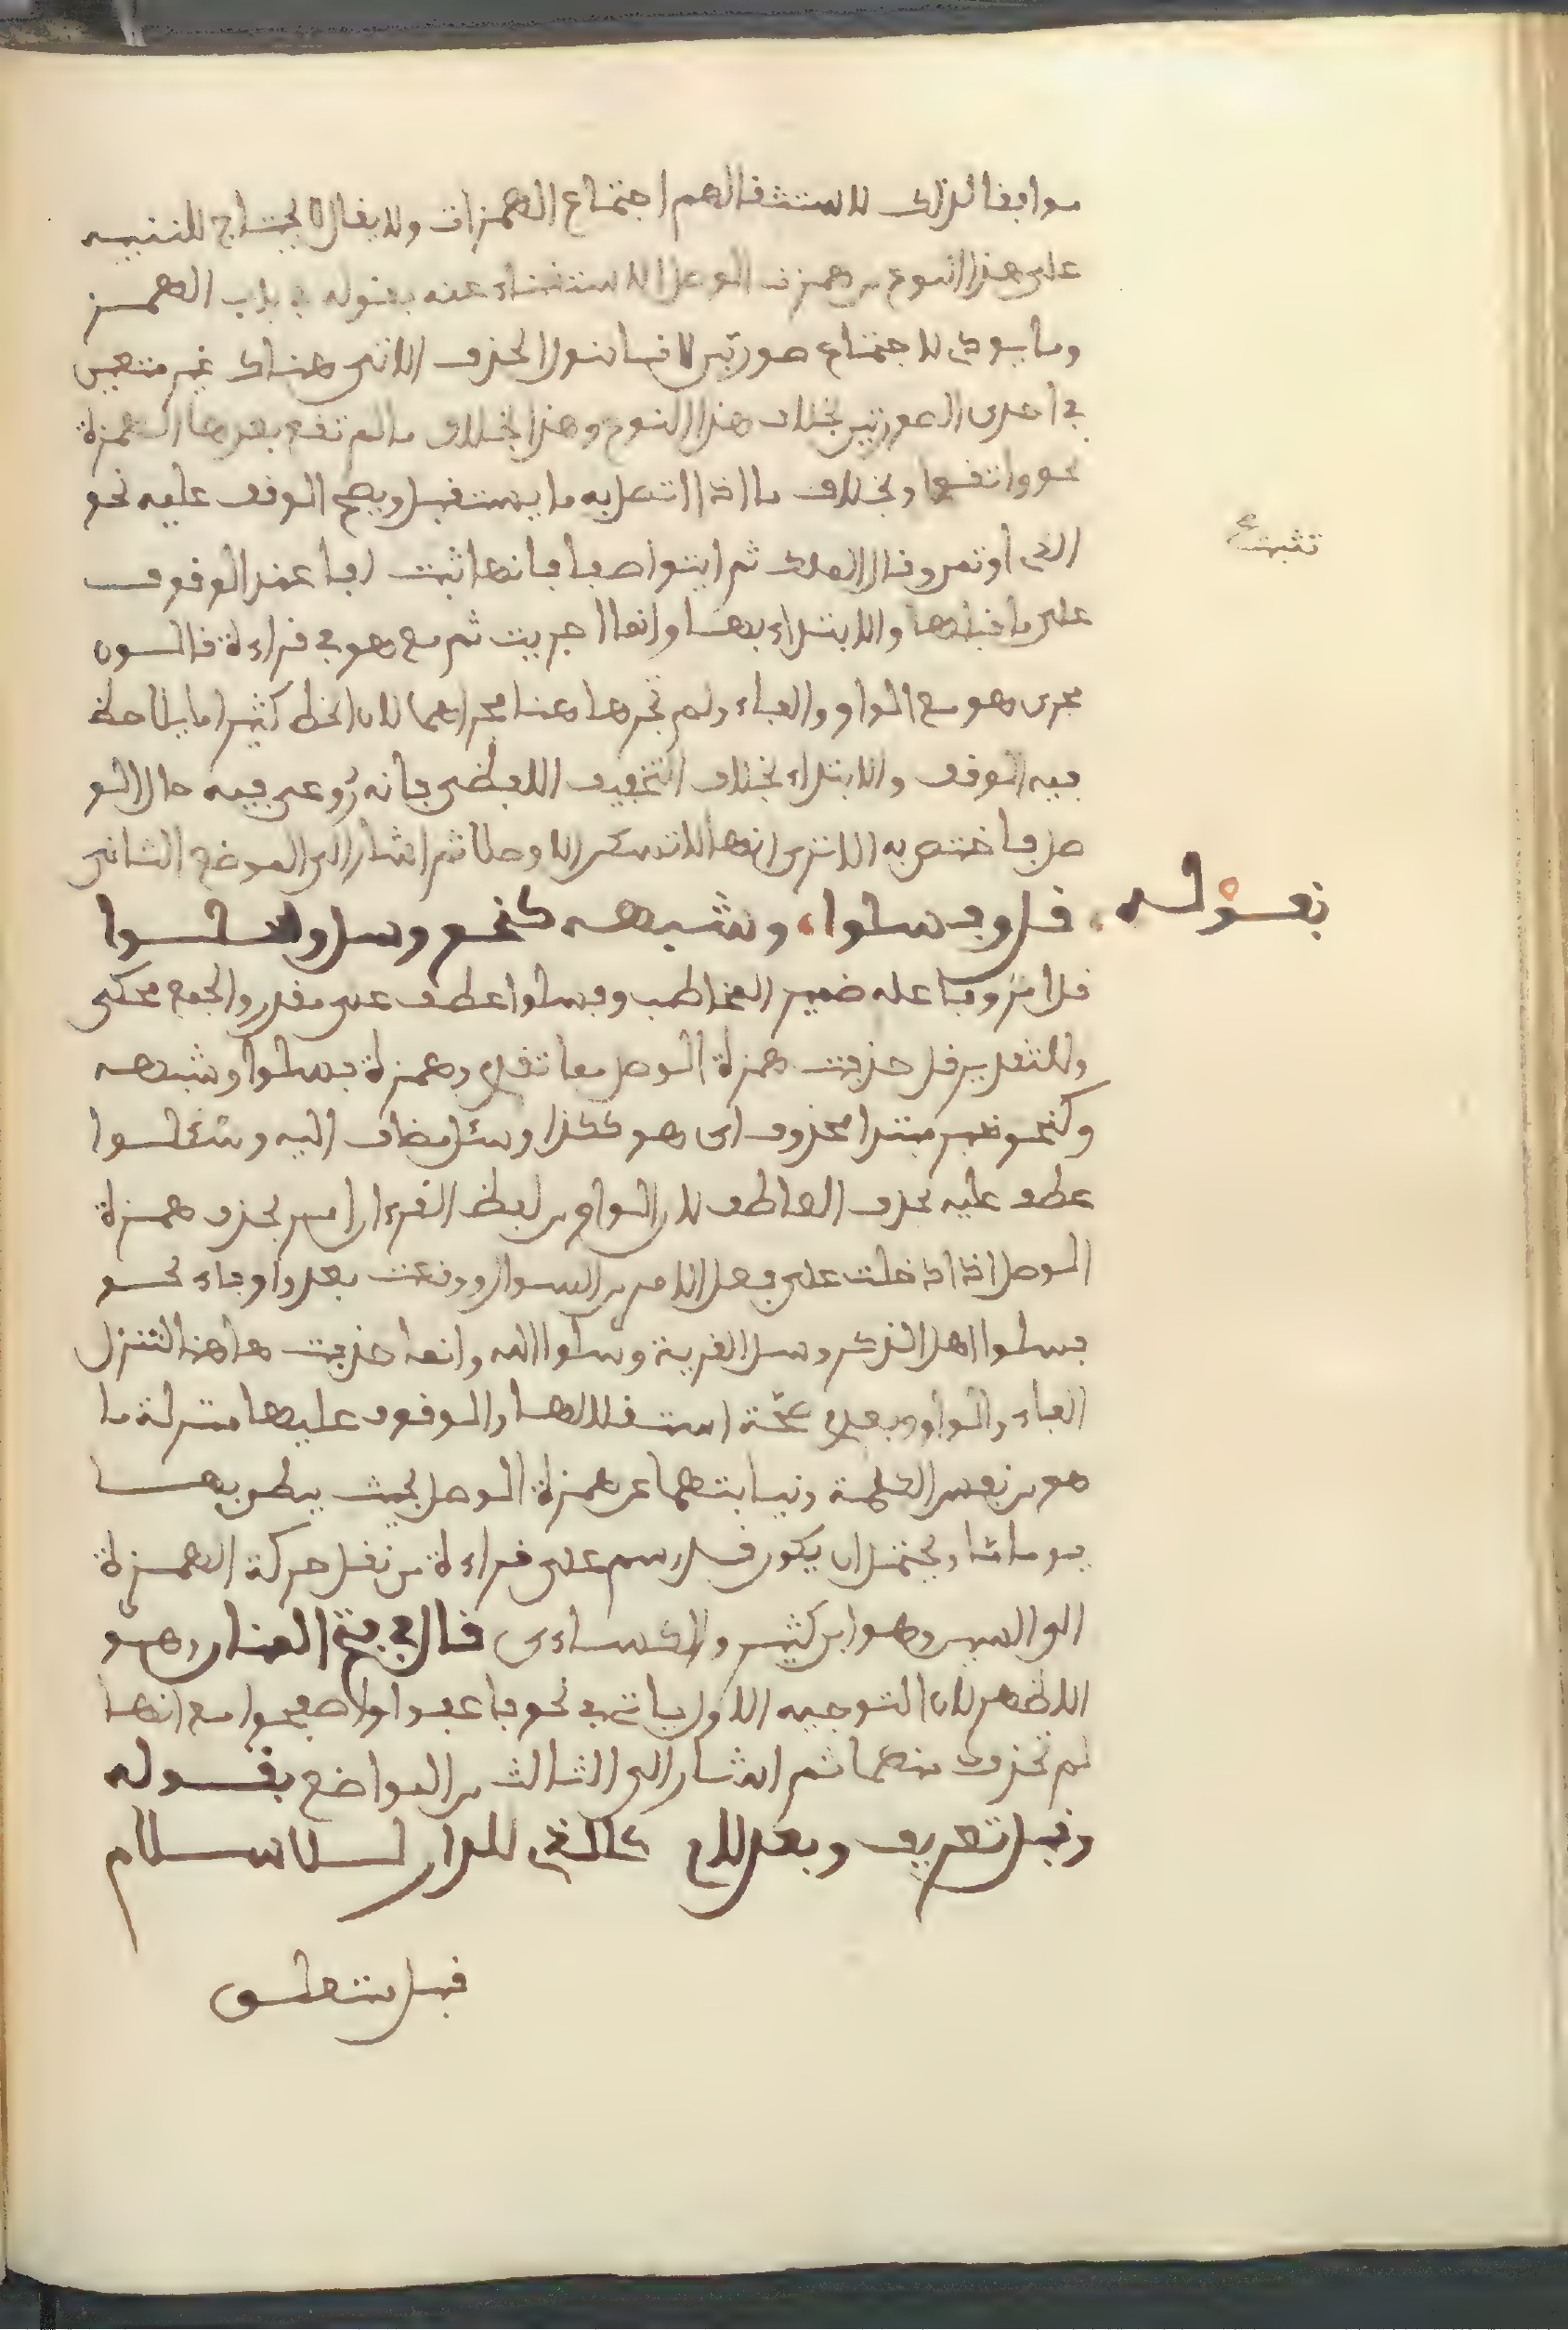 موافقا لذلك لاستثقالهم اجتماع الهمزات ولا يقال لا يحتاج للتنبيه
على هذا النوع من همزت الوصل الاستغناء عنه بقوله في باب الهمز
وما يودي لاجتماع صورتين لانا نقول الحذف الاتي هناك غير متعين
في احدى الصورتين بخلاف هذا النوع وهذا بخلاف ما لم تقع بعدها الهمزة
نحو واتقوا وبخلاف ما اذا اتصل به ما يستقبل ويصح الوقف عليه نحو
الذي اوتمن وقال الملك ثم ايتوا صفا فانها ثبت رعيا عند الوقوف
تثبت ع
على ما قبلها والابتداء بها وانما اجريت ثم مع هو في قراءة قالون
مجرى هو مع الواو والفاء ولم تجرها هنا مجراهما لان الخط كثيرا ما يلاحظ
فيه الوقف والابتداء بخلاف التخفيف اللفظي فانه روعي فيه حال الو
صل فاختص به الا ترى انها لا تسكن الا وصلا ثم اشار الى الموضع الثاني
بقوله قل وفسلوا، وشبهه كنحو وسل وسلوا
فلا من وفاعله ضمير المخاطب وفسلوا عطف على مقدر والجمع محكي
وللتقدير قل حذفت همزة الوصل مما تقدم وهمزة فسلوا وشبهه
وكنحو خبر مبتدا محذوف اى هو ككذا وسل مضاف اليه وسلوا
عطف عليه بحذف العاطف لان الواو من لفظ القرءان امر بحذف همزة
الوصل اذا دخلت على فعل الامر من السوال ووقعت بعد واو وفاء نحو
فسلوا اهل الذكر وسل القرية وسلوا الله وانما حذفت هاهنا لتنزل
الفاء والواو وبعدم صحة استقلالها والوقوف عليها منزلة ما
هو من نفس الكلمة ونيابتهما عن همزة الوصل بحيث ينطق بها
فيو ما شا ويحتمل ان يكون قبل رسم على قراءة من نقل حركة الهمزة
الى السين وهو ابن كثير والكساءى قال في فتح المنان وهو
الاظهر لان التوجيه الاول ياتي في نحو فاعفوا واصفحوا مع انها
لم تحذف منهما ثم اشار الى الثالث من المواضع بقوله
وقبل تعريف وبعد لام كالذي للدار للاسلام
قبل يتعلق